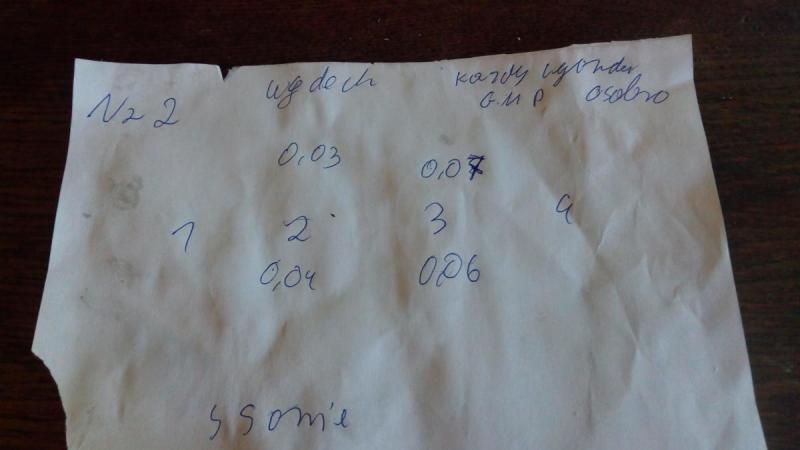 Nr 2 wydech każdy cylinder
G.M.P. osobno
0,03 0,07
1 2 3 4
0,04 0,06
ssanie